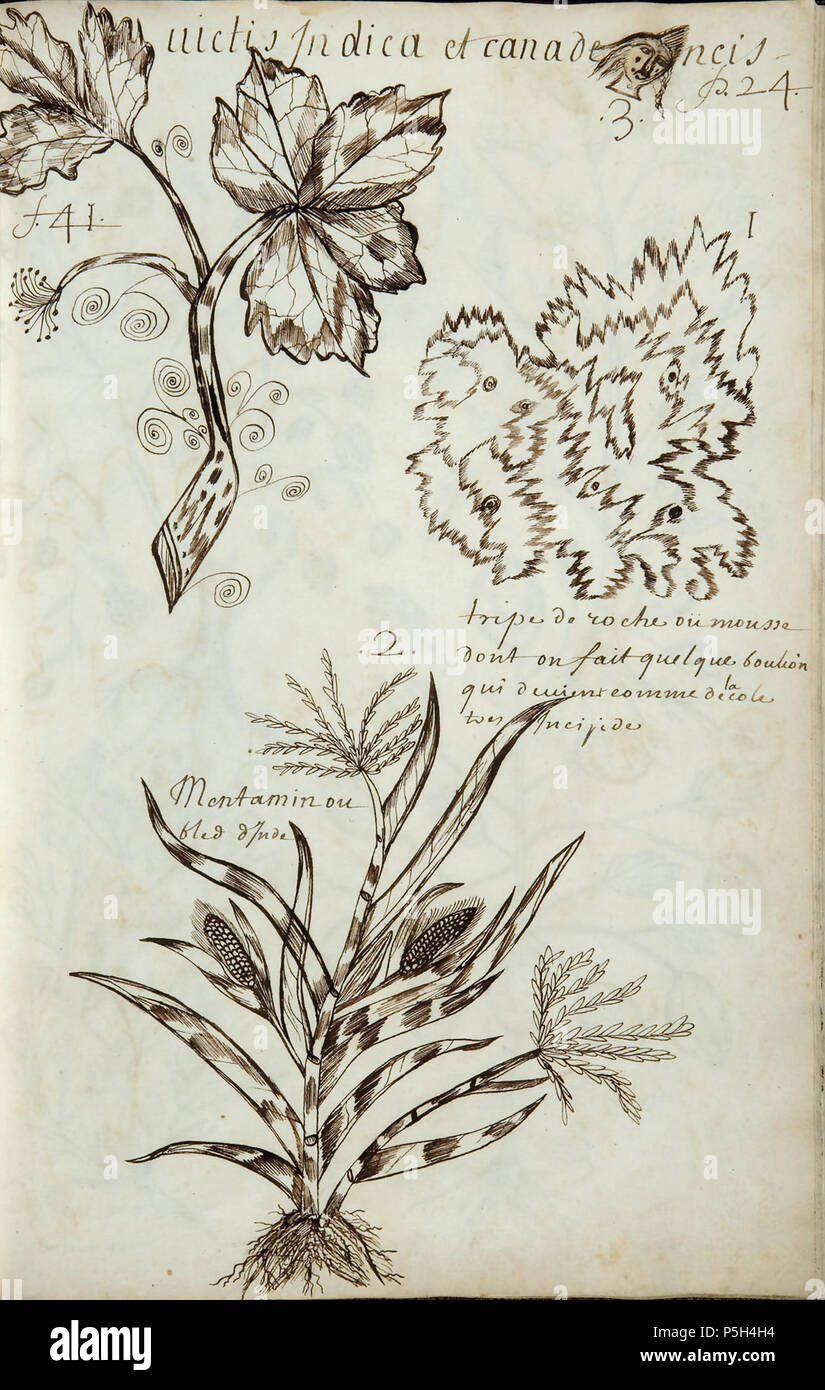 uictis Indica et canade ncis
p. 24.
.3.
f. 41.
1
tripe de roche ou mousse
dont on fait quelque boulion
qui deuient comme de la cole
tres Incipide
.2.
Mentamin ou
bled d'Inde
alamy
alamy
Image ID: P5H4H4
www.alamy.com